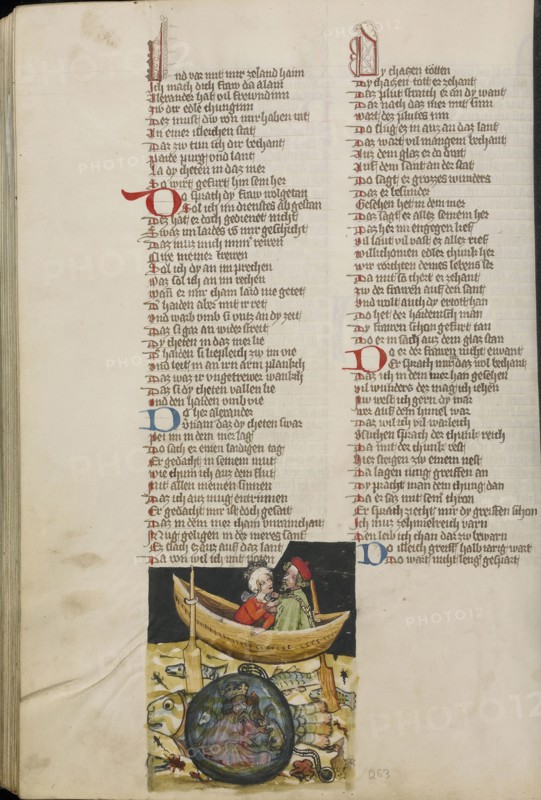 Und var mit mir zeland haim
Ich mach dich fraw da alain
Alexander hat vil frewndinn
Zw dir edle chunginn
Des must dw von mir haben nit
In einer isleichen stat
Daz zw tun ich dir bechant
Paide purg und lant
La dy cheten in daz mer
So wirt gefurt hin sein her
Do sprach dy fraw wolgetan
Sol ich im dienstes ab gestan
Des hat er doch gedienet nicht
Swaz im laides is mir geschicht
Daz muz mich immer rewen
Mit meiner trewen
Sol ich dy an im prechen
Waz sol ich an im rechen
Wan er mir chain laid nie getet
Der haiden aber mit ir ret
Und warb umb si untz an dy zeit
Daz si gar an widerstreit
Dy cheten in daz mer lie
Der haiden si liepleich zw im vie
Und leit im an irn arm planch
Daz waz ir ungetrewer wanch
Daz si dy cheten vallen lie
Und den haiden umb vie
Do her alexander
Vernam daz dy cheten swar
Pei im in dem mer lag
Do sach er einen laidigen tag
Er gedacht in seinem mut
Wie chum ich aus dem flut
Mit allen meinen sinnen
Daz ich auz mug entrinnen
Er gedacht mir ist doch gesait
Daz in dem mer chain unrainchait
Mug geligen in des meres sant
Ez slach ez auz auf daz lant
Da von wil ich mit
Dy chatzen totten
Dy chatzen tott er zehant
Daz plut straich er an dy want
Daz nach daz mer mit sinn
Wart des plutes inn
Do slug ez in auz an daz lant
Daz wart vil mangem bechant
Auz dem glaz er do trat
Auf dem sant an der stat
Do sagt er grozzes wunders
Daz er besunder
Gesehen het in dem mer
Daz sagt er allez seinem her
Daz her im engegen lief
Vil laut vil vast ez allez rief
Willichomen edler chunik her
Wir vorchten deines lebens ser
Da mit so chert er zehant
Zw der frawen auf den sant
Und wolt auch dy ertott han
Do het der haidenisch man
Dy frawen schon gefurt dan
Do er in sach auz dem glas stan
Do er der frawen nicht envant
Er sprach nu ist daz wol bechant
Daz ich in dem mer han gesehen
Vil wunders des mag ich iehen
Nu west ich gern dy mer
Wer auf dem himel war
Daz wil ich vil warleich
Versuchen sprach der chunik reich
Da mit der chunik rest
Hiez steigen zw einem nest
Da lagen iung greiffen an
Dy pracht man dem chunig dan
Da er saz mit seim thron
Er sprach zeucht mir dy greiffen schon
Ich muz zehimelreich varn
Den leib ich chan dar zw bewarn
Do isleich greiff halbiarig wart
Do wart nicht leng gespart
263
PHOTO12